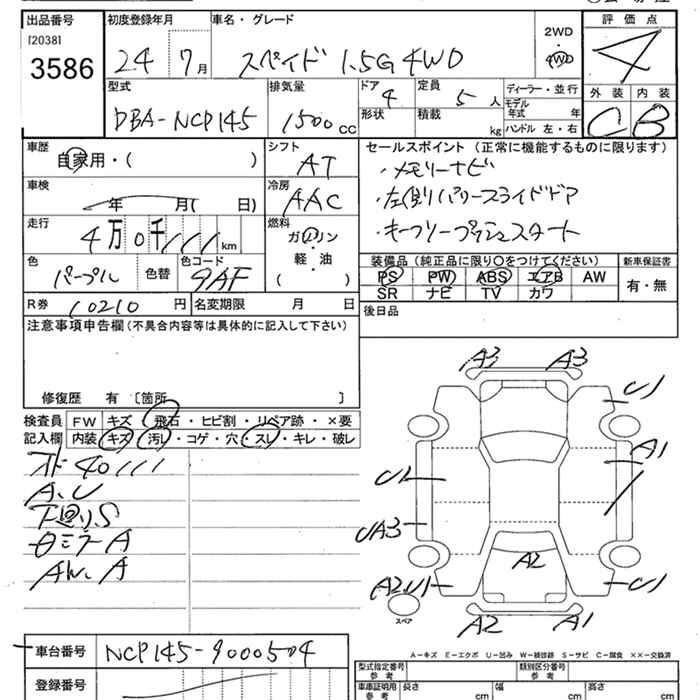 出品番号 初度登録年月 車名・グレード 評価点
[2038]
3586
24 7月 スペイド 1.5G 4WD 2WD 4WD 4
型式 排気量 ドア 定員 ディーラー・並行 外装 内装
DBA-NCP145 1500cc 4 5人 モデル年式 年 C B
形状 積載 kg ハンドル 左・右
車歴 シフト セールスポイント(正常に機能するものに限ります)
自家用・( ) AT ・メモリーナビ
車検 冷房 ・左側パワースライドドア
年 月( 日) AAC ・キーフリープッシュスタート
走行 燃料
4万0千111km ガソリン
軽・油
( )
色 色替 色コード 装備品(純正品に限り○をつけてください) 新車保証書
パープル 9AF PS PW ABS エアB AW 有・無
SR ナビ TV カワ
R券 10210円 名変期限 月 日 後日品
注意事項申告欄(不具合内容等は具体的に記入して下さい)
修復歴 有 〔箇所 〕
検査員 FW キズ・飛石・ヒビ割・リペア跡・×要
記入欄 内装 キズ・汚レ・コゲ・穴・スレ・キレ・破レ
オド 40111
A、U
下廻りS
AW、A
A3 A3
U1
A1
UA3
A2
A2U1 U1
スペア
A2 A1
A−キズ E−エクボ U−凹み W−補修跡 S−サビ C−腐食 ××−交換済
車台番号 NCP145-9000504
登録番号
型式指定番号 参考 類別区分番号 参考
車庫証明用 参考 長さ cm 幅 cm 高さ cm